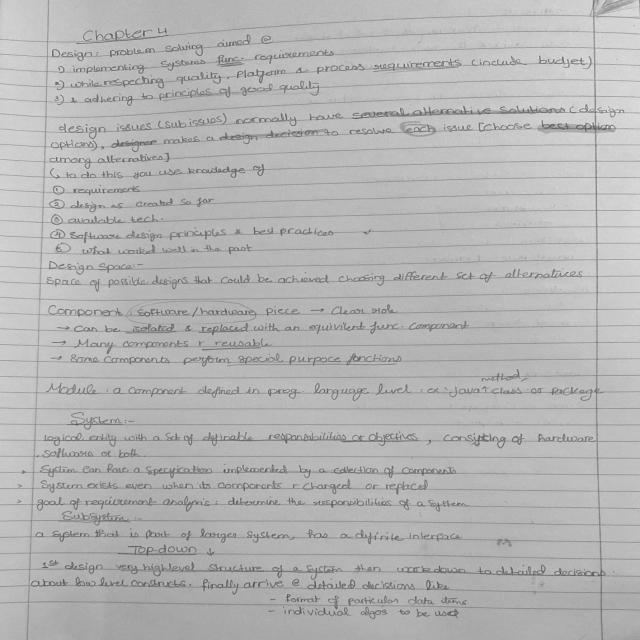 Chapter 4
Design: problem solving aimed @
1) implementing systems func. requirements
2) while respecting quality, platform & process requirements (include budjet)
3) & adhering to principles of good quality
design issues (subissues) normally have several alternative solutions (design
options), designer makes a design decision to resolve each issue [choose best option
among alternatives]
↳ to do this you use knowledge of
① requirements
② design as created so far
③ available tech.
④ Software design principles & best practices
⑤ what worked well in the past
Design space:-
Space of possible designs that could be achieved choosing different set of alternatives
Component: software/hardware piece → clear role
→ Can be isolated & replaced with an equivilent func. component
→ Many components r reusable
→ Some components perform special purpose functions
method,
Module: a component defined in prog language level. ex: java class or package
System:-
logical entity with a set of definable responsibilities or objectives, consisting of hardware
software or both.
System can have a specification implemented by a collection of components
System exists even when its components r changed or replaced
goal of requirement analysis: determine the responsibilities of a system
Subsystem:-
a system that is part of larger system, has a definite interface
Top-down ↓
1st design very high level structure of a system then work down to detailed decisions
about low level constructs. finally arrive @ detailed decisions like
- format of particular data items
- individual algos to be used